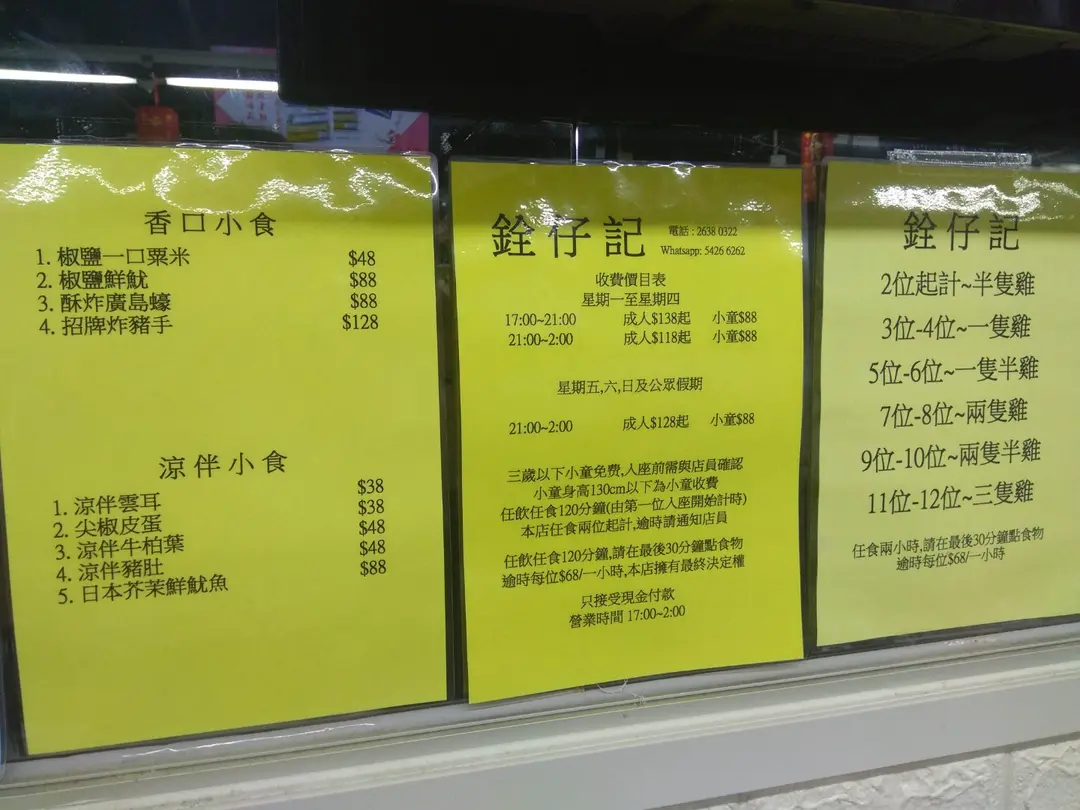 香口小食
1. 椒鹽一口粟米 $48
2. 椒鹽鮮魷 $88
3. 酥炸廣島蠔 $88
4. 招牌炸豬手 $128
涼伴小食
1. 涼伴雲耳 $38
2. 尖椒皮蛋 $38
3. 涼伴牛柏葉 $48
4. 涼伴豬肚 $48
5. 日本芥茉鮮魷魚 $88
銓仔記
電話 : 2638 0322
Whatsapp: 5426 6262
收費價目表
星期一至星期四
17:00~21:00 成人$138起 小童$88
21:00~2:00 成人$118起 小童$88
星期五,六,日及公眾假期
21:00~2:00 成人$128起 小童$88
三歲以下小童免费,入座前需與店員確認
小童身高130cm以下為小童收費
任飲任食120分鐘(由第一位入座開始計時)
本店任食兩位起計,逾時請通知店員
任飲任食120分鐘,請在最後30分鐘點食物
逾時每位$68/一小時,本店擁有最終決定權
只接受現金付款
營業時間 17:00~2:00
銓仔記
2位起計~半隻雞
3位-4位~一隻雞
5位-6位~一隻半雞
7位-8位~兩隻雞
9位-10位~兩隻半雞
11位-12位~三隻雞
任食兩小時,請在最後30分鐘點食物
逾時每位$68/一小時